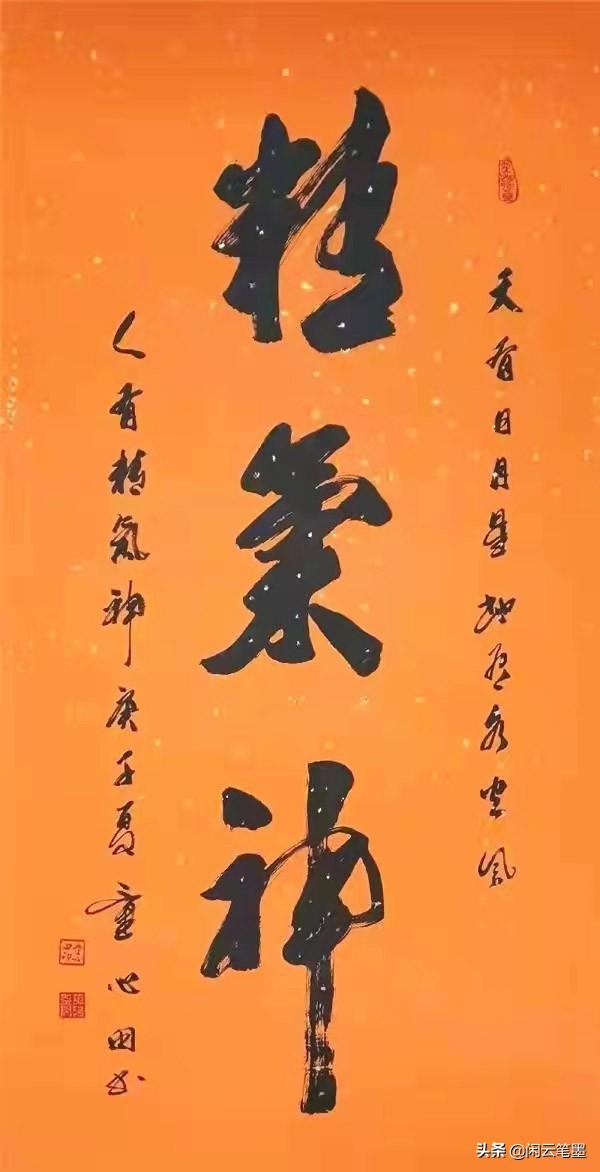 精氣神
天有日月星地有水風
人有精氣神庚子夏童心田书
头条 @闲云笔墨